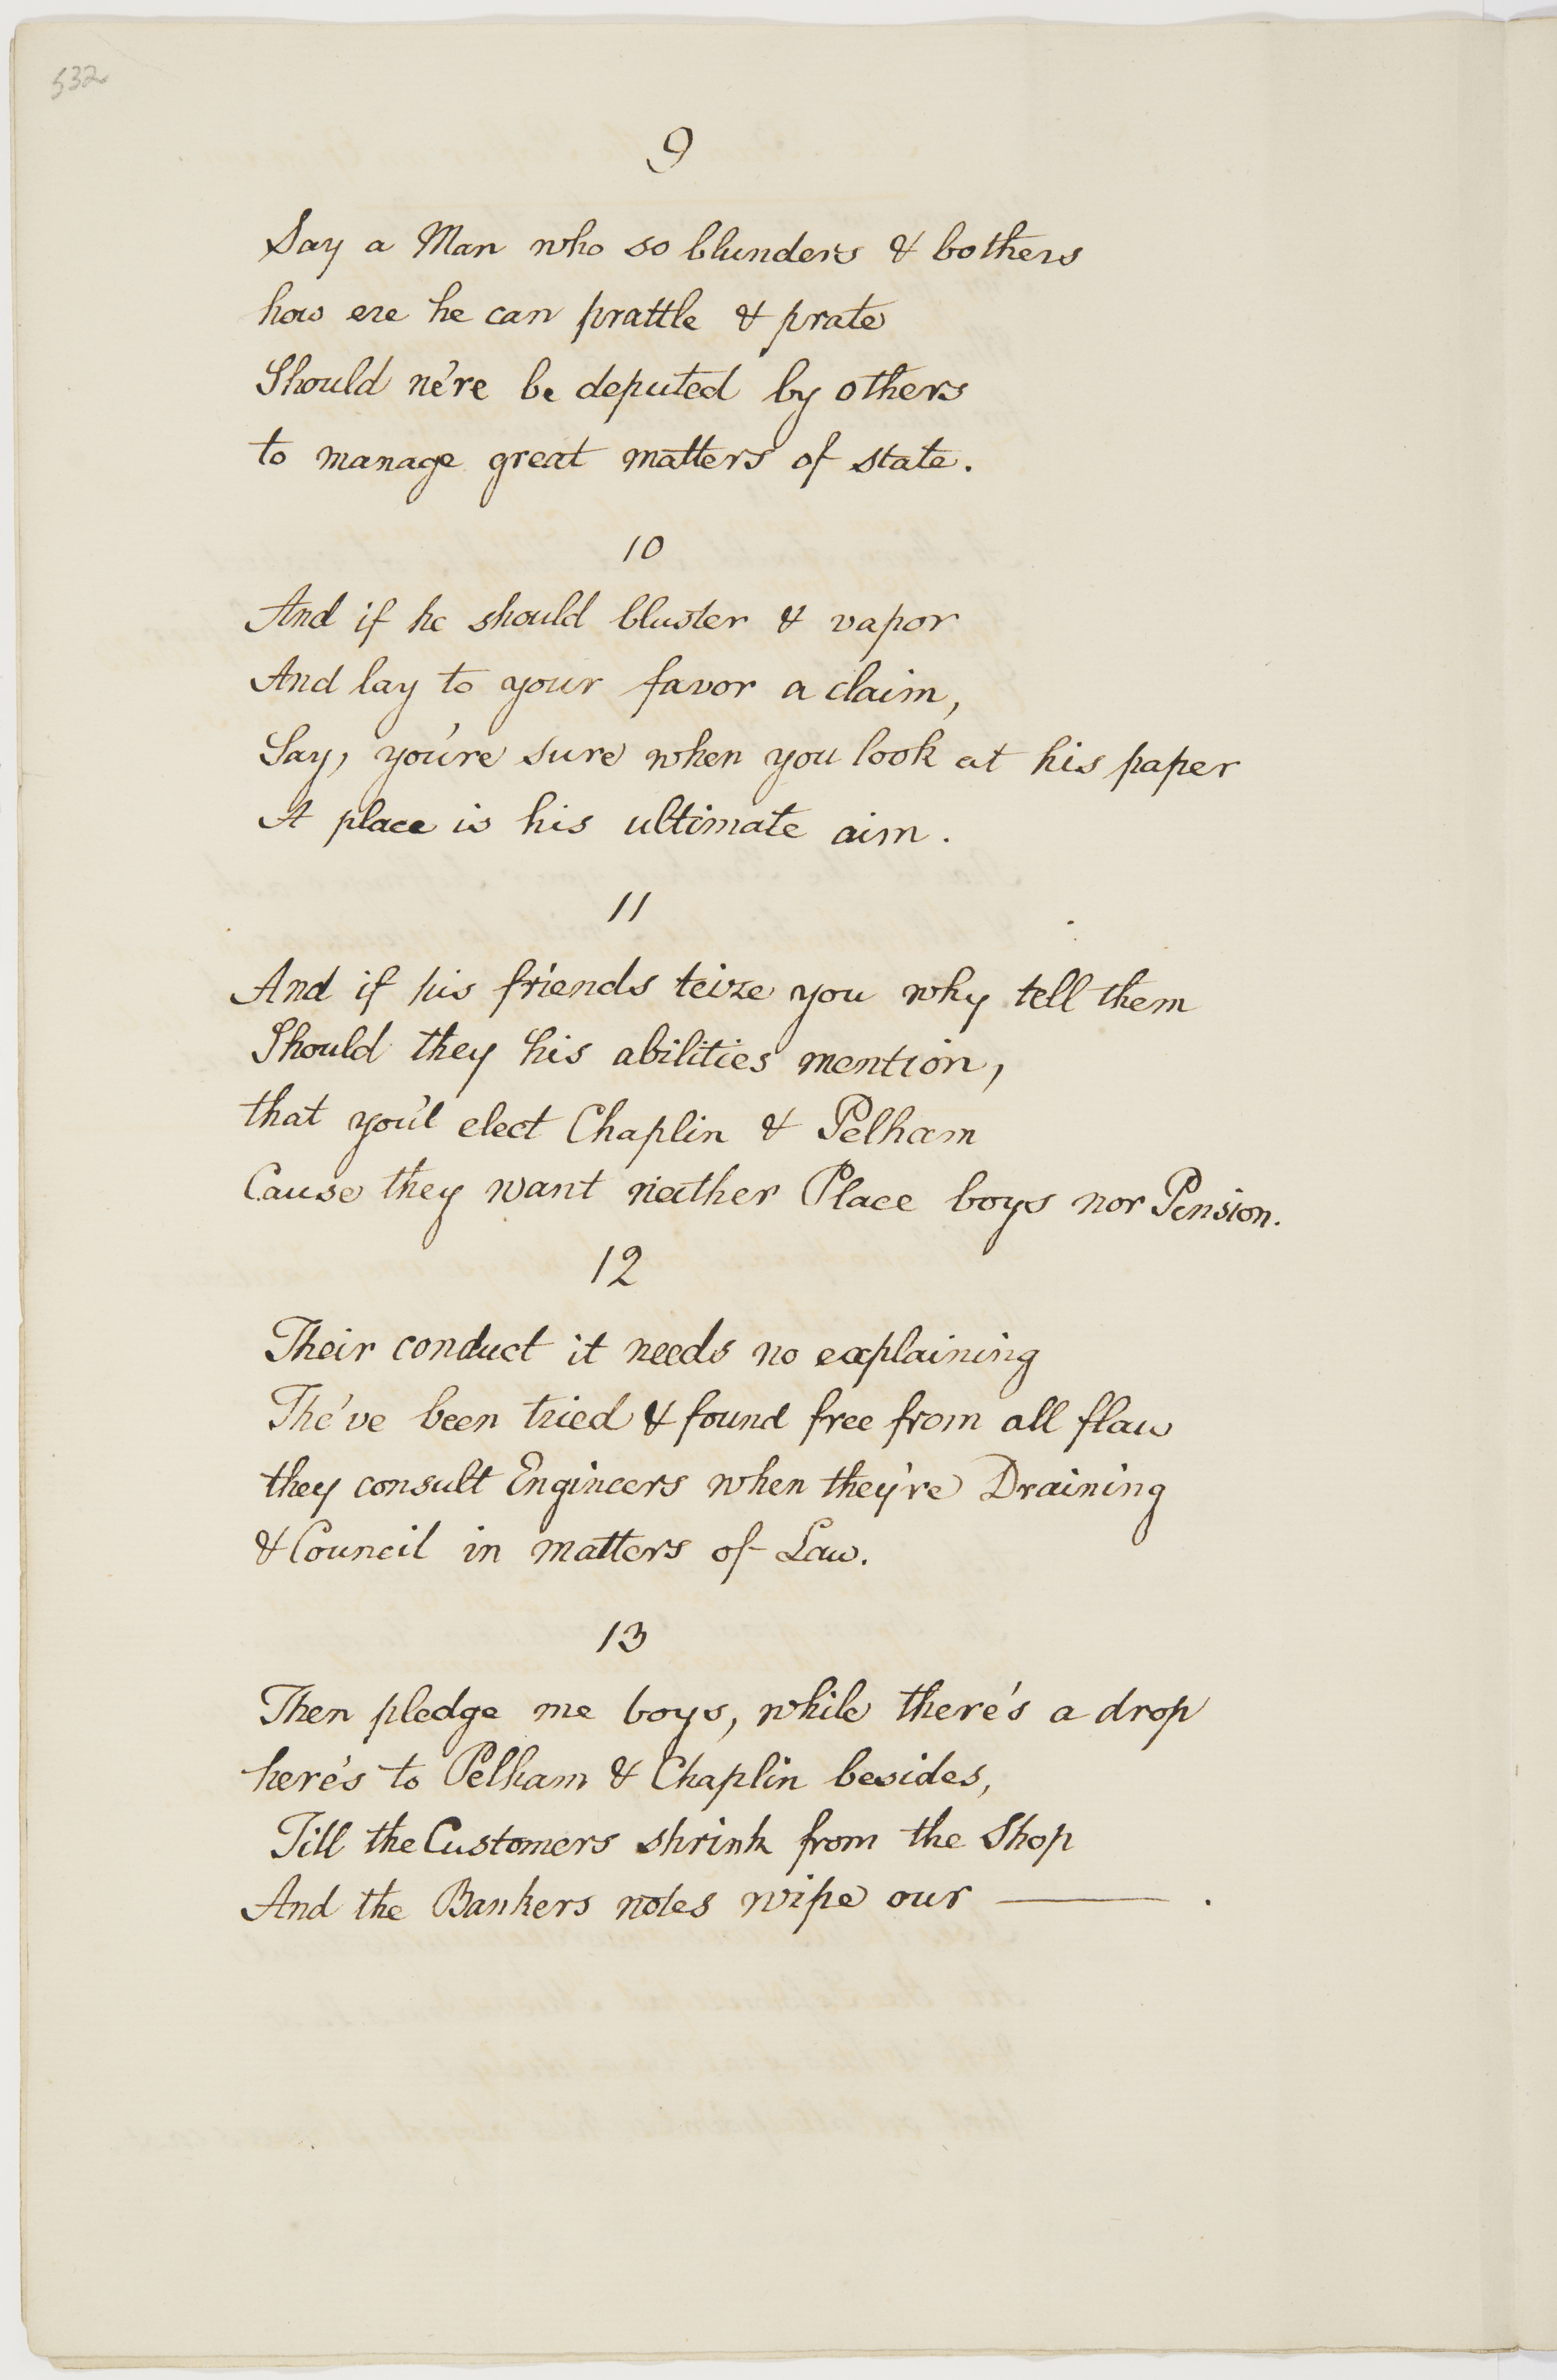 532
9
Say a Man who so blunders & bothers
how ere he can prattle & prate
Should ne're be deputed by others
to manage great matters of state.
10
And if he should bluster & vapor
And lay to your favor a claim,
Say, you're sure when you look at his paper
A place is his ultimate aim.
11
And if his friends teize you why tell them
Should they his abilities mention,
that you'l elect Chaplin & Pelham
Cause they want neither Place boys nor Pension.
12
Their conduct it needs no explaining
The've been tried & found free from all flaw
they consult Engineers when they're Draining
& Council in matters of Law.
13
Then pledge me boys, while there's a drop
here's to Pelham & Chaplin besides,
Till the Customers shrink from the Shop
And the Bankers notes wipe our ——— .